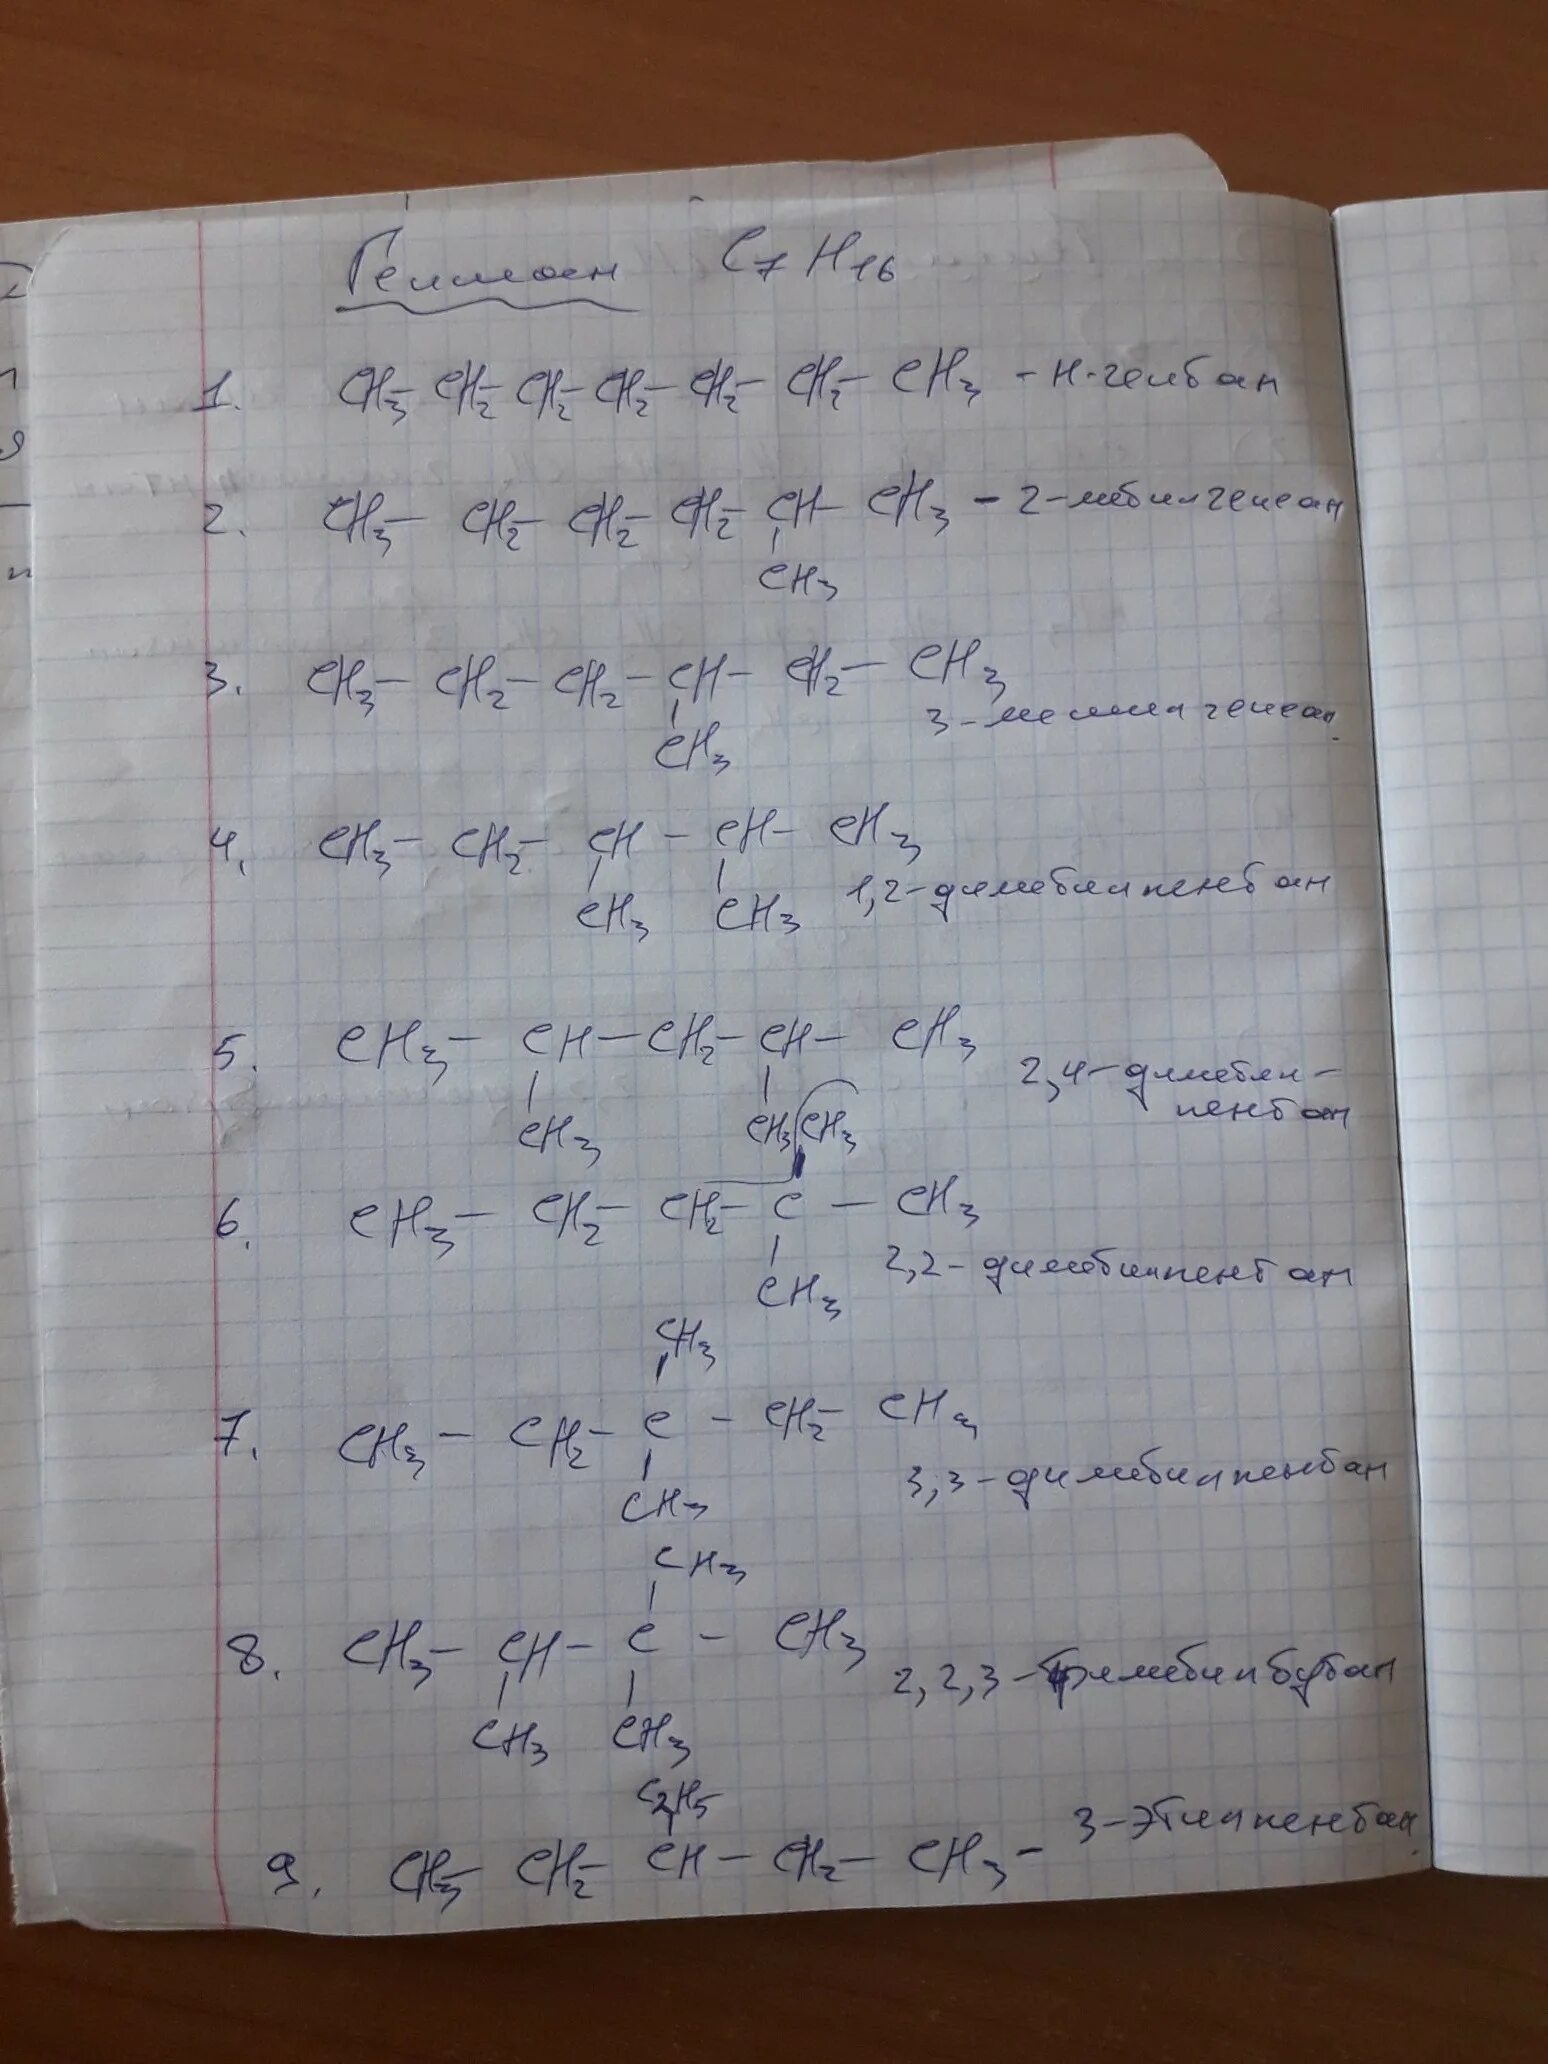 Гептан C7H16
1. CH3- CH2- CH2- CH2- CH2- CH2- CH3 - н-гептан
2. CH3- CH2- CH2- CH2- CH- CH3 - 2-метилгексан
CH3
3. CH3- CH2- CH2- CH- CH2- CH3
3-метилгексан
CH3
4. CH3- CH2- CH - CH- CH3
1,2-диметилпентан
CH3 CH3
5. CH3- CH- CH2- CH- CH3
2,4-диметил-
пентан
CH3 CH3 CH3
6. CH3- CH2- CH2- C - CH3
2,2-диметилпентан
CH3
CH3
7. CH3- CH2- C - CH2- CH3
3,3-диметилпентан
CH3
CH3
8. CH3- CH- C - CH3
2,2,3-триметилбутан
CH3 CH3
C2H5
9. CH3- CH2- CH- CH2- CH3- 3-этилпентан